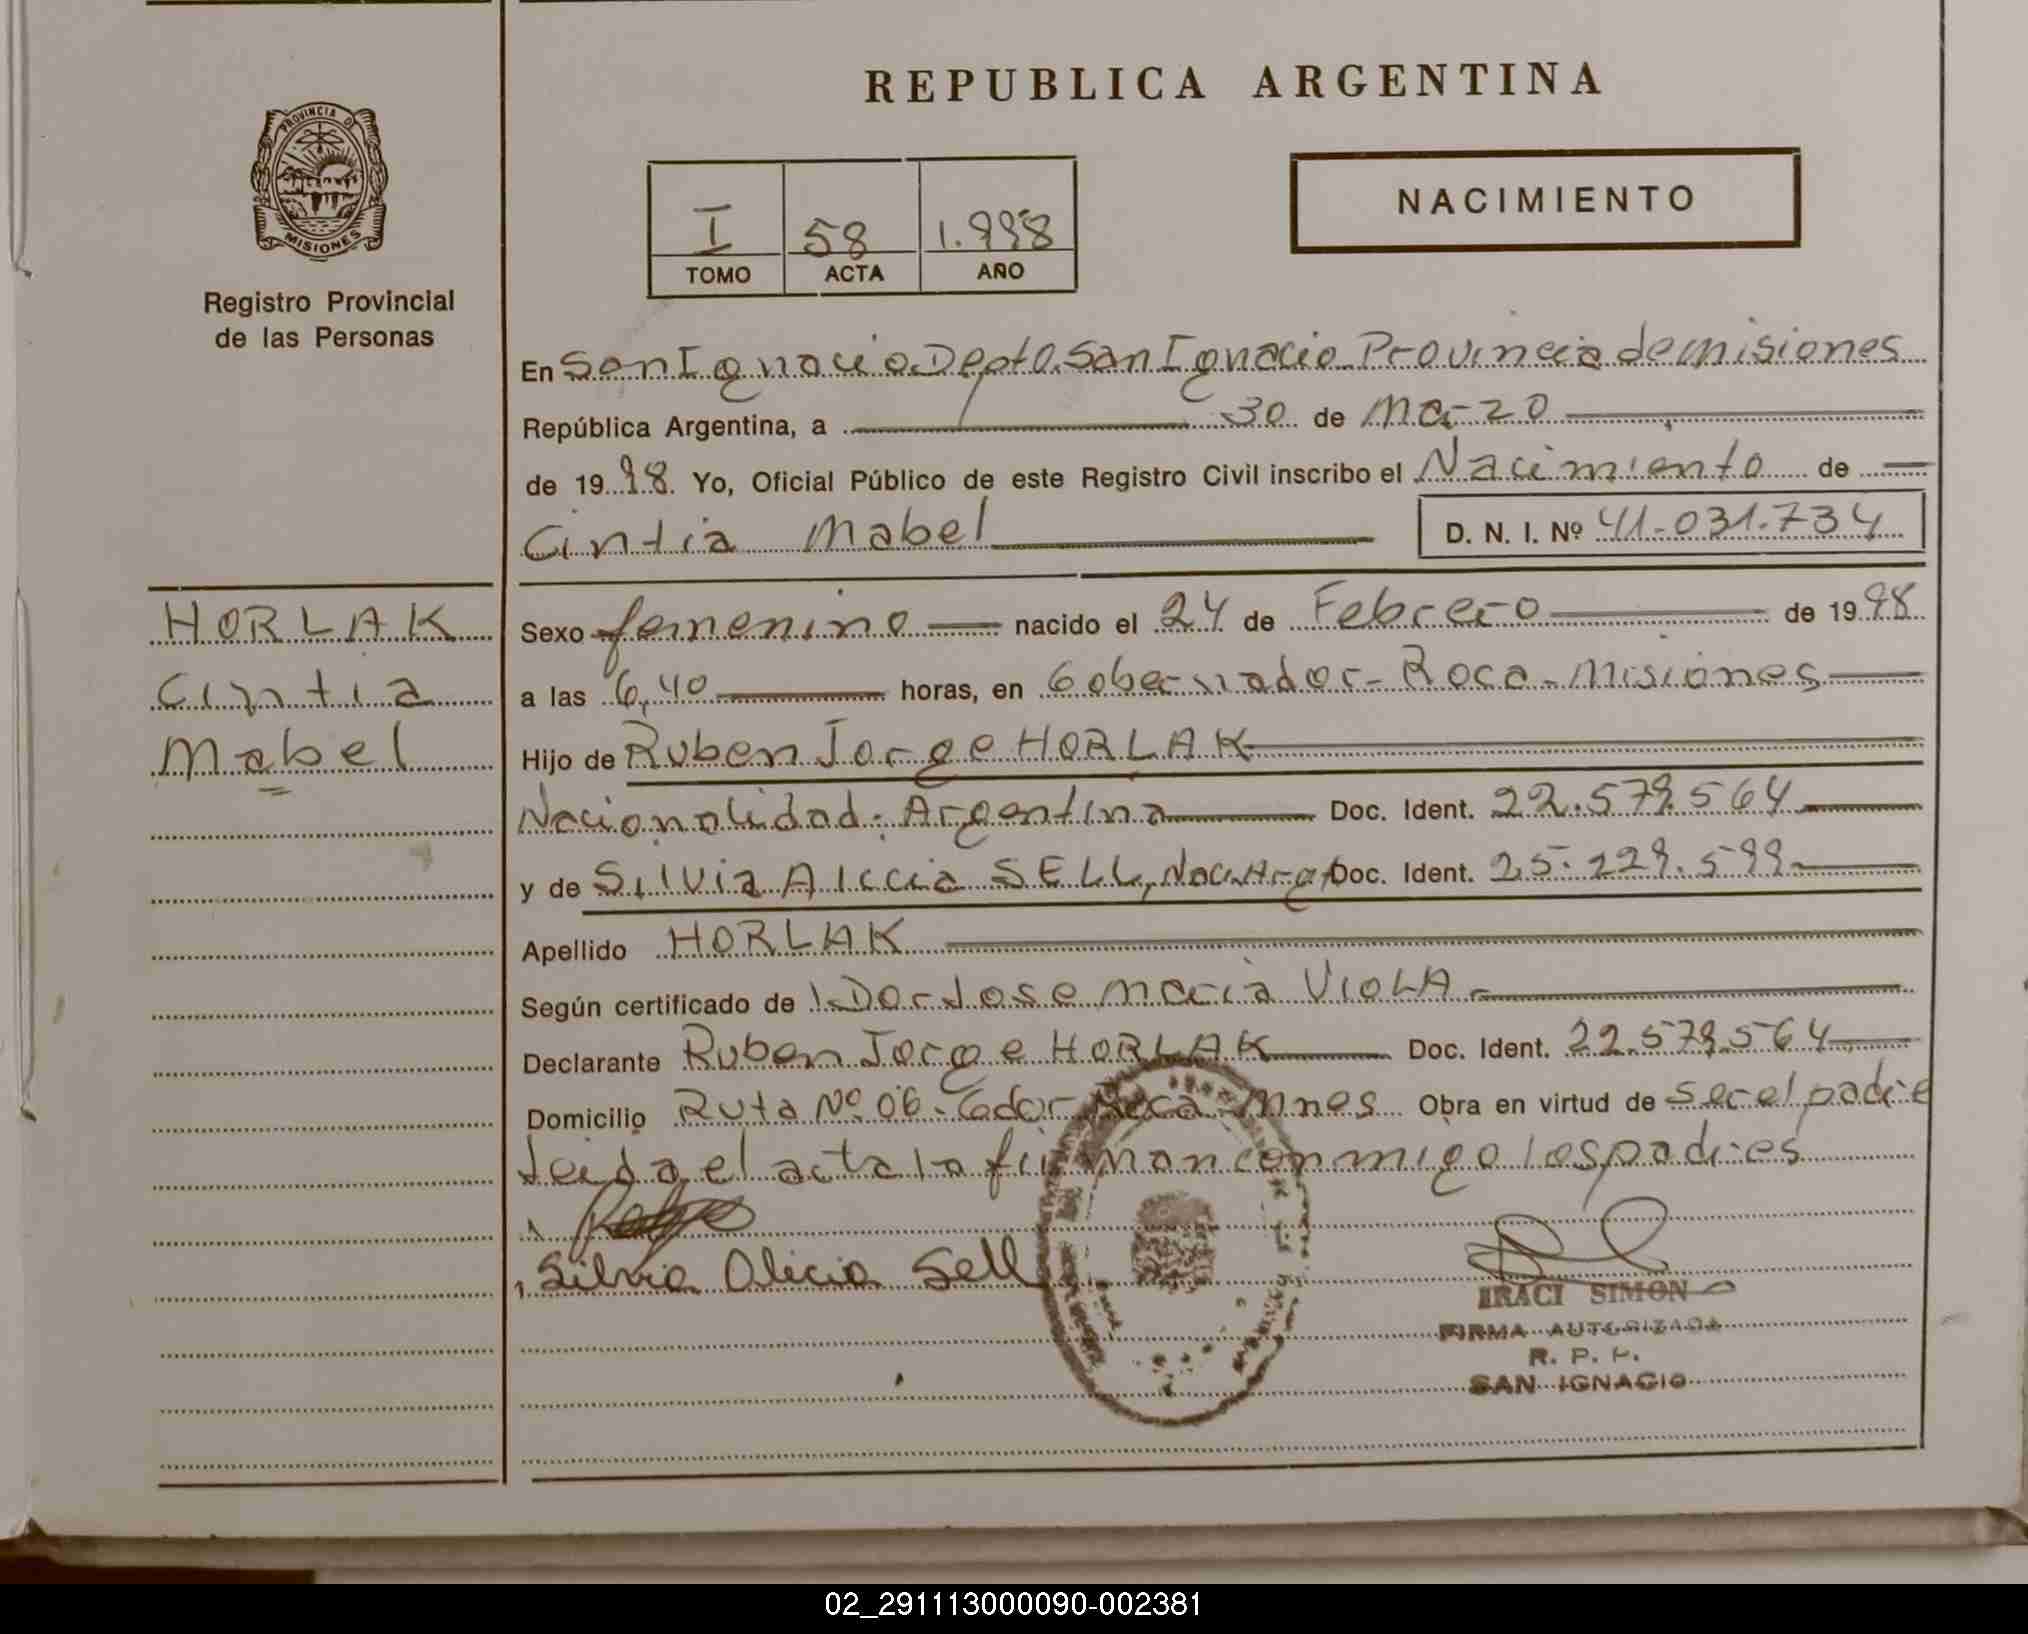 REPUBLICA ARGENTINA
PROVINCIA DE
MISIONES
Registro Provincial
de las Personas
I 58 1.998
TOMO ACTA AÑO
NACIMIENTO
En San Ignacio Depto. San Ignacio Provincia de misiones
República Argentina, a 30 de Marzo
de 1998. Yo, Oficial Público de este Registro Civil inscribo el Nacimiento de
Cintia Mabel D. N. I. Nº 41-031.734
HORLAK
Cintia
Mabel
Sexo femenino nacido el 24 de Febrero de 1998
a las 6,40 horas, en Gobernador - Roca - Misiones
Hijo de Ruben Jorge HORLAK
Nacionalidad: Argentina Doc. Ident. 22.579.564
y de Silvia Alicia SELL, Nac. Arg. Doc. Ident. 25.229.599
Apellido HORLAK
Según certificado de Dor Jose Maria VIOLA
Declarante Ruben Jorge HORLAK Doc. Ident. 22.579.564
Domicilio Ruta Nº 06 - Gdor Roca Mnes Obra en virtud de ser el padre
leida el acta la firman conmigo los padres
Silvia Alicia Sell
IRACI SIMON
FIRMA AUTORIZADA
R. P. P.
SAN IGNACIO
02_291113000090-002381